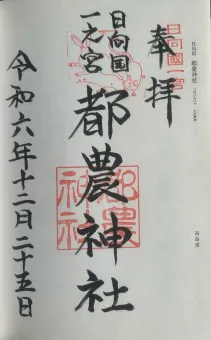 奉拝
日向國一宮
日向国
一之宮
都農神社
都農神社
令和六年十二月二十五日